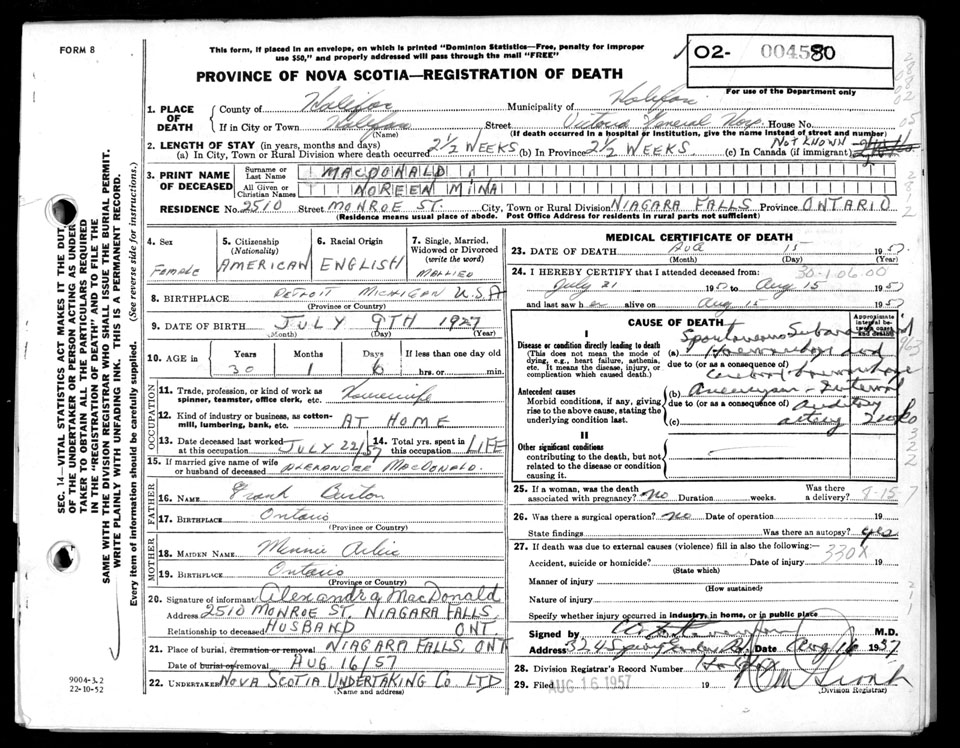 FORM 8
This form, if placed in an envelope, on which is printed "Dominion Statistics—Free, penalty for improper
use $50," and properly addressed will pass through the mail "FREE"
PROVINCE OF NOVA SCOTIA—REGISTRATION OF DEATH
02- 004580
For use of the Department only
SEC. 14—VITAL STATISTICS ACT MAKES IT THE DUTY
OF THE UNDERTAKER OR PERSON ACTING AS UNDER-
TAKER TO OBTAIN ALL THE PARTICULARS REQUIRED
IN THE "REGISTRATION OF DEATH" AND TO FILE THE
SAME WITH THE DIVISION REGISTRAR WHO SHALL ISSUE THE BURIAL PERMIT.
WRITE PLAINLY WITH UNFADING INK. THIS IS A PERMANENT RECORD.
Every item of information should be carefully supplied. (See reverse side for instructions.)
1. PLACE OF DEATH County of Halifax Municipality of Halifax
If in City or Town Halifax Street Victoria General Hosp. House No.
(Name) (If death occurred in a hospital or institution, give the name instead of street and number)
2. LENGTH OF STAY (in years, months and days) NOT KNOWN
(a) In City, Town or Rural Division where death occurred 2 1/2 WEEKS (b) In Province 2 1/2 WEEKS. (c) In Canada (if immigrant)
3. PRINT NAME OF DECEASED Surname or Last Name MACDONALD
All Given or Christian Names NOREEN MINA
RESIDENCE No. 2510 Street MONROE ST. City, Town or Rural Division NIAGARA FALLS Province ONTARIO
(Residence means usual place of abode. Post Office Address for residents in rural parts not sufficient)
4. Sex Female
5. Citizenship (Nationality) AMERICAN
6. Racial Origin ENGLISH
7. Single, Married, Widowed or Divorced (write the word) MARRIED
8. BIRTHPLACE DETROIT MICHIGAN U.S.A
(Province or Country)
9. DATE OF BIRTH JULY 9TH 1927
(Month) (Day) (Year)
10. AGE IN Years Months Days If less than one day old
30 1 6 hrs. or min.
OCCUPATION
11. Trade, profession, or kind of work as spinner, teamster, office clerk, etc. Housewife
12. Kind of industry or business, as cotton-mill, lumbering, bank, etc. AT HOME
13. Date deceased last worked at this occupation JULY 22/57 14. Total yrs. spent in this occupation LIFE
15. If married give name of wife or husband of deceased ALEXANDER MACDONALD.
FATHER
16. NAME Frank Burton
17. BIRTHPLACE Ontario
(Province or Country)
MOTHER
18. MAIDEN NAME Minnie
19. BIRTHPLACE Ontario
(Province or Country)
20. Signature of informant Alexandra MacDonald
Address 2510 MONROE ST. NIAGARA FALLS,
Relationship to deceased HUSBAND ONT.
21. Place of burial, cremation or removal NIAGARA FALLS, ONT
Date of burial or removal AUG 16/57
22. UNDERTAKER NOVA SCOTIA UNDERTAKING CO. LTD
(Name and address)
9004-3.2
22-10-52
MEDICAL CERTIFICATE OF DEATH
23. DATE OF DEATH Aug 15 1957
(Month) (Day)
24. I HEREBY CERTIFY that I attended deceased from: 30-1.06.00
July 21 1957 to Aug 15 1957
and last saw her alive on Aug 15 1957
CAUSE OF DEATH
Approximate interval between onset and death
I
Disease or condition directly leading to death
(This does not mean the mode of dying, e.g., heart failure, asthenia, etc. It means the disease, injury, or complication which caused death.)
(a) Spontaneous Subarachnoid Haemorrhage and
due to (or as a consequence of) cerebral haemorrhage
Antecedent causes
Morbid conditions, if any, giving rise to the above cause, stating the underlying condition last.
(b) Aneurysm - Internal
due to (or as a consequence of) auditory
(c) artery
II
Other significant conditions
contributing to the death, but not related to the disease or condition causing it.
25. If a woman, was the death associated with pregnancy? No Duration weeks. Was there a delivery?
26. Was there a surgical operation? No Date of operation 19
State findings Was there an autopsy? yes
27. If death was due to external causes (violence) fill in also the following:—
Accident, suicide or homicide? Date of injury 19
330X
(State which)
Manner of injury
(How sustained)
Nature of injury
Specify whether injury occurred in industry, in home, or in public place
Signed by M.D.
Address 3245 Spring Garden Rd. Date Aug 16 1957
28. Division Registrar's Record Number
29. Filed AUG 16 1957 19
(Division Registrar)